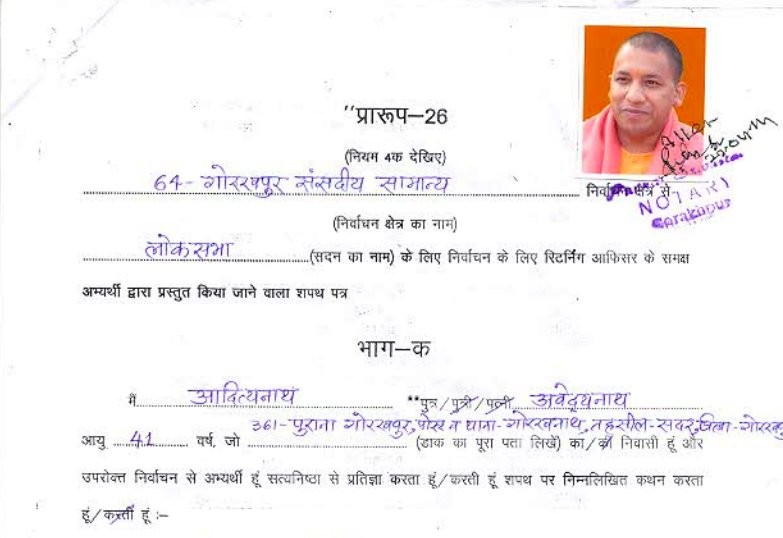 "प्रारूप—26
(नियम 4क देखिए)
64- गोरखपुर संसदीय सामान्य निर्वाचन क्षेत्र से
NOTARY
Gorakhpur
(निर्वाचन क्षेत्र का नाम)
लोकसभा (सदन का नाम) के लिए निर्वाचन के लिए रिटर्निंग आफिसर के समक्ष
अभ्यर्थी द्वारा प्रस्तुत किया जाने वाला शपथ पत्र
भाग—क
मैं आदित्यनाथ **पुत्र/पुत्री/पत्नी अवेद्यनाथ
361-पुराना गोरखपुर, पोस्ट व थाना-गोरखनाथ, तहसील-सदर, जिला-गोरखपु
आयु 41 वर्ष, जो (डाक का पूरा पता लिखें) का/की निवासी हूं और
उपरोक्त निर्वाचन से अभ्यर्थी हूं सत्यनिष्ठा से प्रतिज्ञा करता हूं/करती हूं शपथ पर निम्नलिखित कथन करता
हूं/करती हूं :–